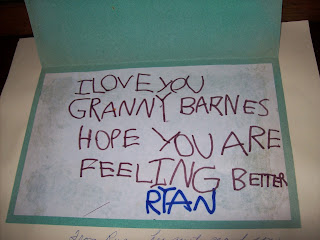 I LOVE YOU
GRANNY BARNES
HOPE YOU ARE
FEELING BETTER
RYAN